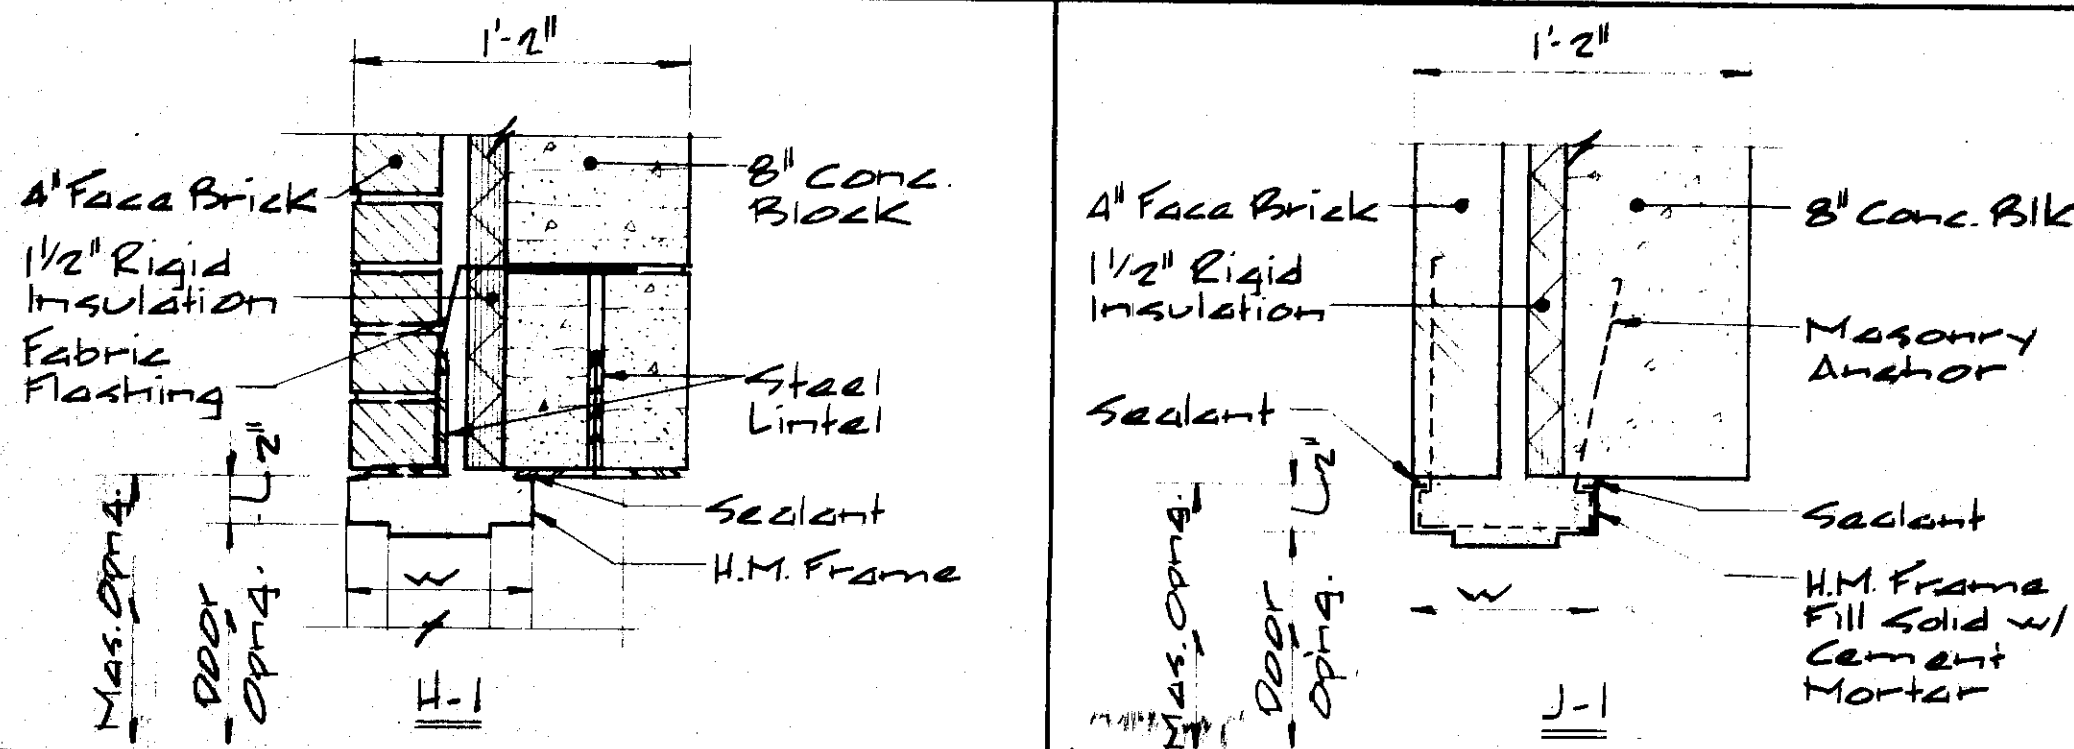 1'-2"
4" Face Brick
1 1/2" Rigid
Insulation
Fabric
Flashing
8" Conc.
Block
Steel
Lintel
Sealant
H.M. Frame
2"
Mas. Opng.
Door
Opng.
W
H-1
1'-2"
4" Face Brick
1 1/2" Rigid
Insulation
Sealant
8" Conc. Blk
Masonry
Anchor
Sealant
H.M. Frame
Fill Solid w/
Cement
Mortar
2"
Mas. Opng.
Door
Opng.
W
J-1